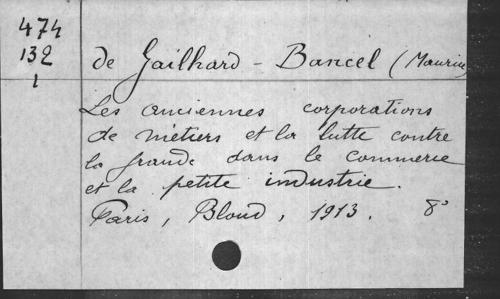 474
132
1
de Gailhard - Bancel (Maurice)
Les anciennes corporations
de métiers et la lutte contre
la fraude dans le commerce
et la petite industrie.
Paris, Bloud, 1913. 8°